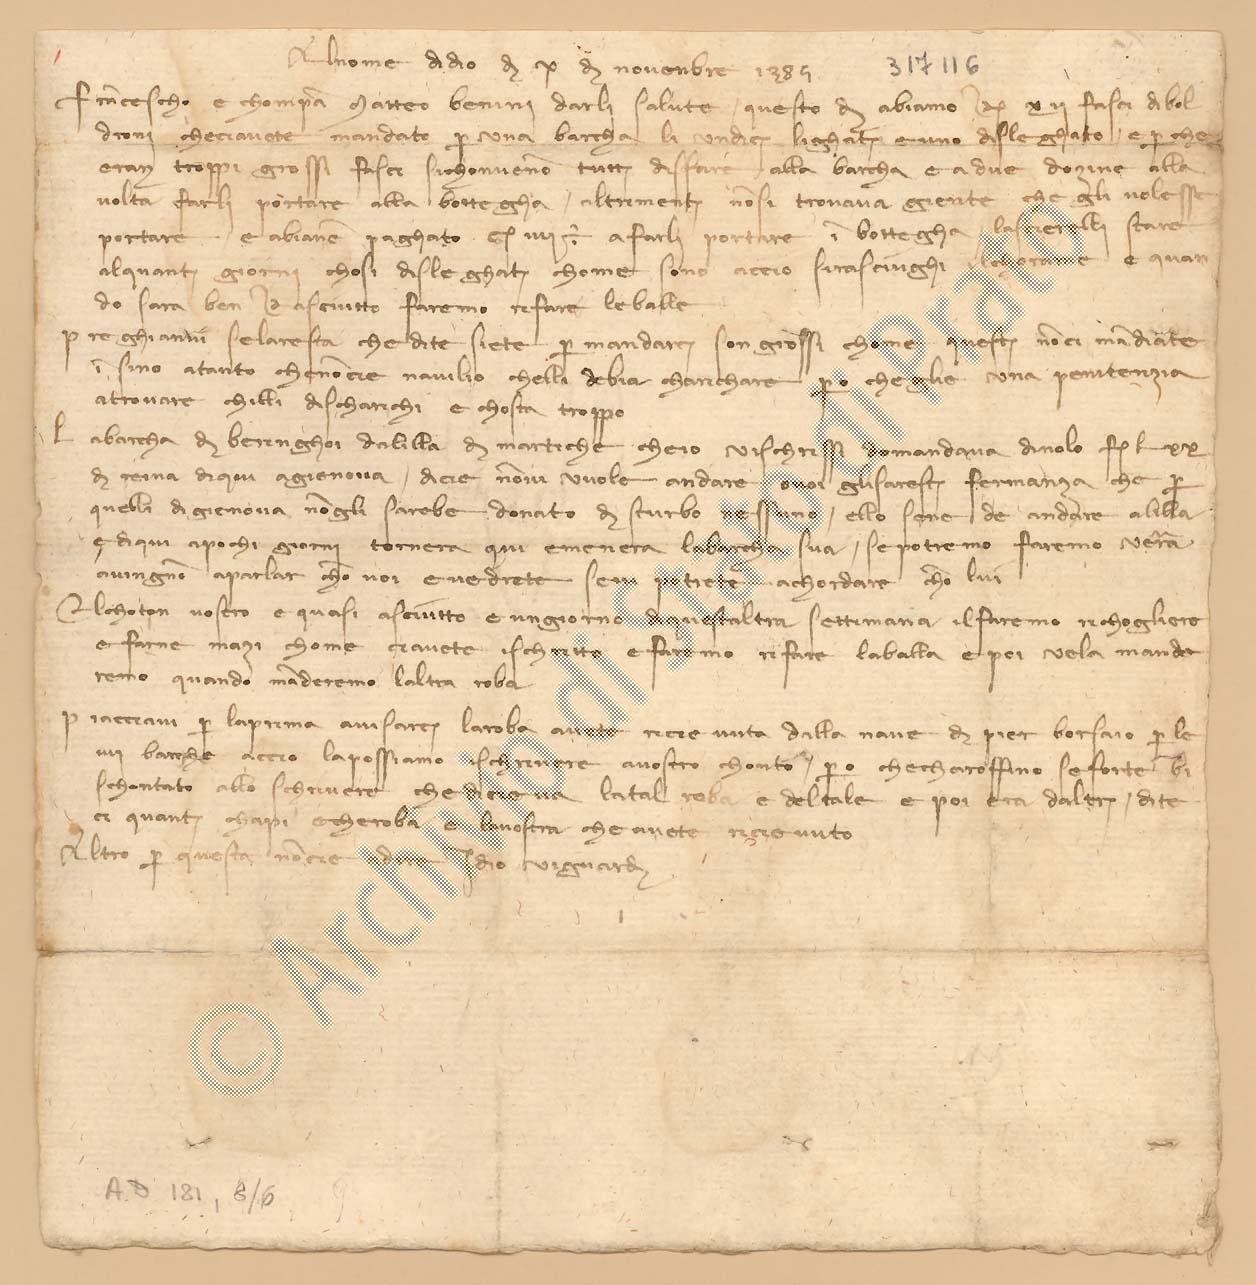 Al nome di dio dì x di novenbre 1385 317116
Francescho e chonpa Matteo benini darli salute, questo dì abiamo xii fasci di bol
droni che ci avete mandato p una barcha li undici lighati e uno disleghato, e p che
eran troppi grossi fasci si chonvene tutti disfare alla barcha e a due dozine alla
volta farli portare alla bottegha, altrimenti nosi trovava giente che gli volesse
portare e abiane paghato a farli portare i bottegha lascierelli stare
alquanti giorni chosi disleghati chome sono accio si rasciughi il chorame e quan
do sara ben rasciutto faremo rifare le balle
preghianvi se la resta che dite siete p mandarci son grossi chome questi noci mandiate
i sino a tanto che nocie navilio che lli debia charichare p o che glie una penitenzia
a trovare chilli discharichi e chosta troppo
La barcha di beringhoi dalilla di martiche che io vi schrissi domandava di nolo f l xx
di reina di qui a gienova, dicie novi vuole andare o voi gli faresti fermanza che p
quelli di gienova nogli sarebe donato di sturbo nessuno, ello sene de andare a lilla
e di qui a pochi giorni tornera qui e menera la barcha sua, se potremo faremo verra
a vingno a parlar cho voi e vedrete se vi potrete achordare cho lui
Il choton vostro e quasi asciutto e un giorno di questaltra settimana il faremo richogliere
e farne mazi chome ci avete ischritto e faremo rifare la balla e poi vela mande
remo quando maderemo laltra roba
piacciavi p la prima avisarci la roba avete ricievuta dalla nave di pier borsaio p le
iiii barche accio la possiamo ischrivere a vostro chonto, p o che charoffino se forte bi
schontato allo schrivere che dicieva la tal roba e del tale e poi era daltri, dite
ci quanti chapi e che roba e la vostra che avete ricievuto
Altro p questa nocie a dire Idio vi guardi
A.D 181, 8/6
© Archivio di Stato di Prato